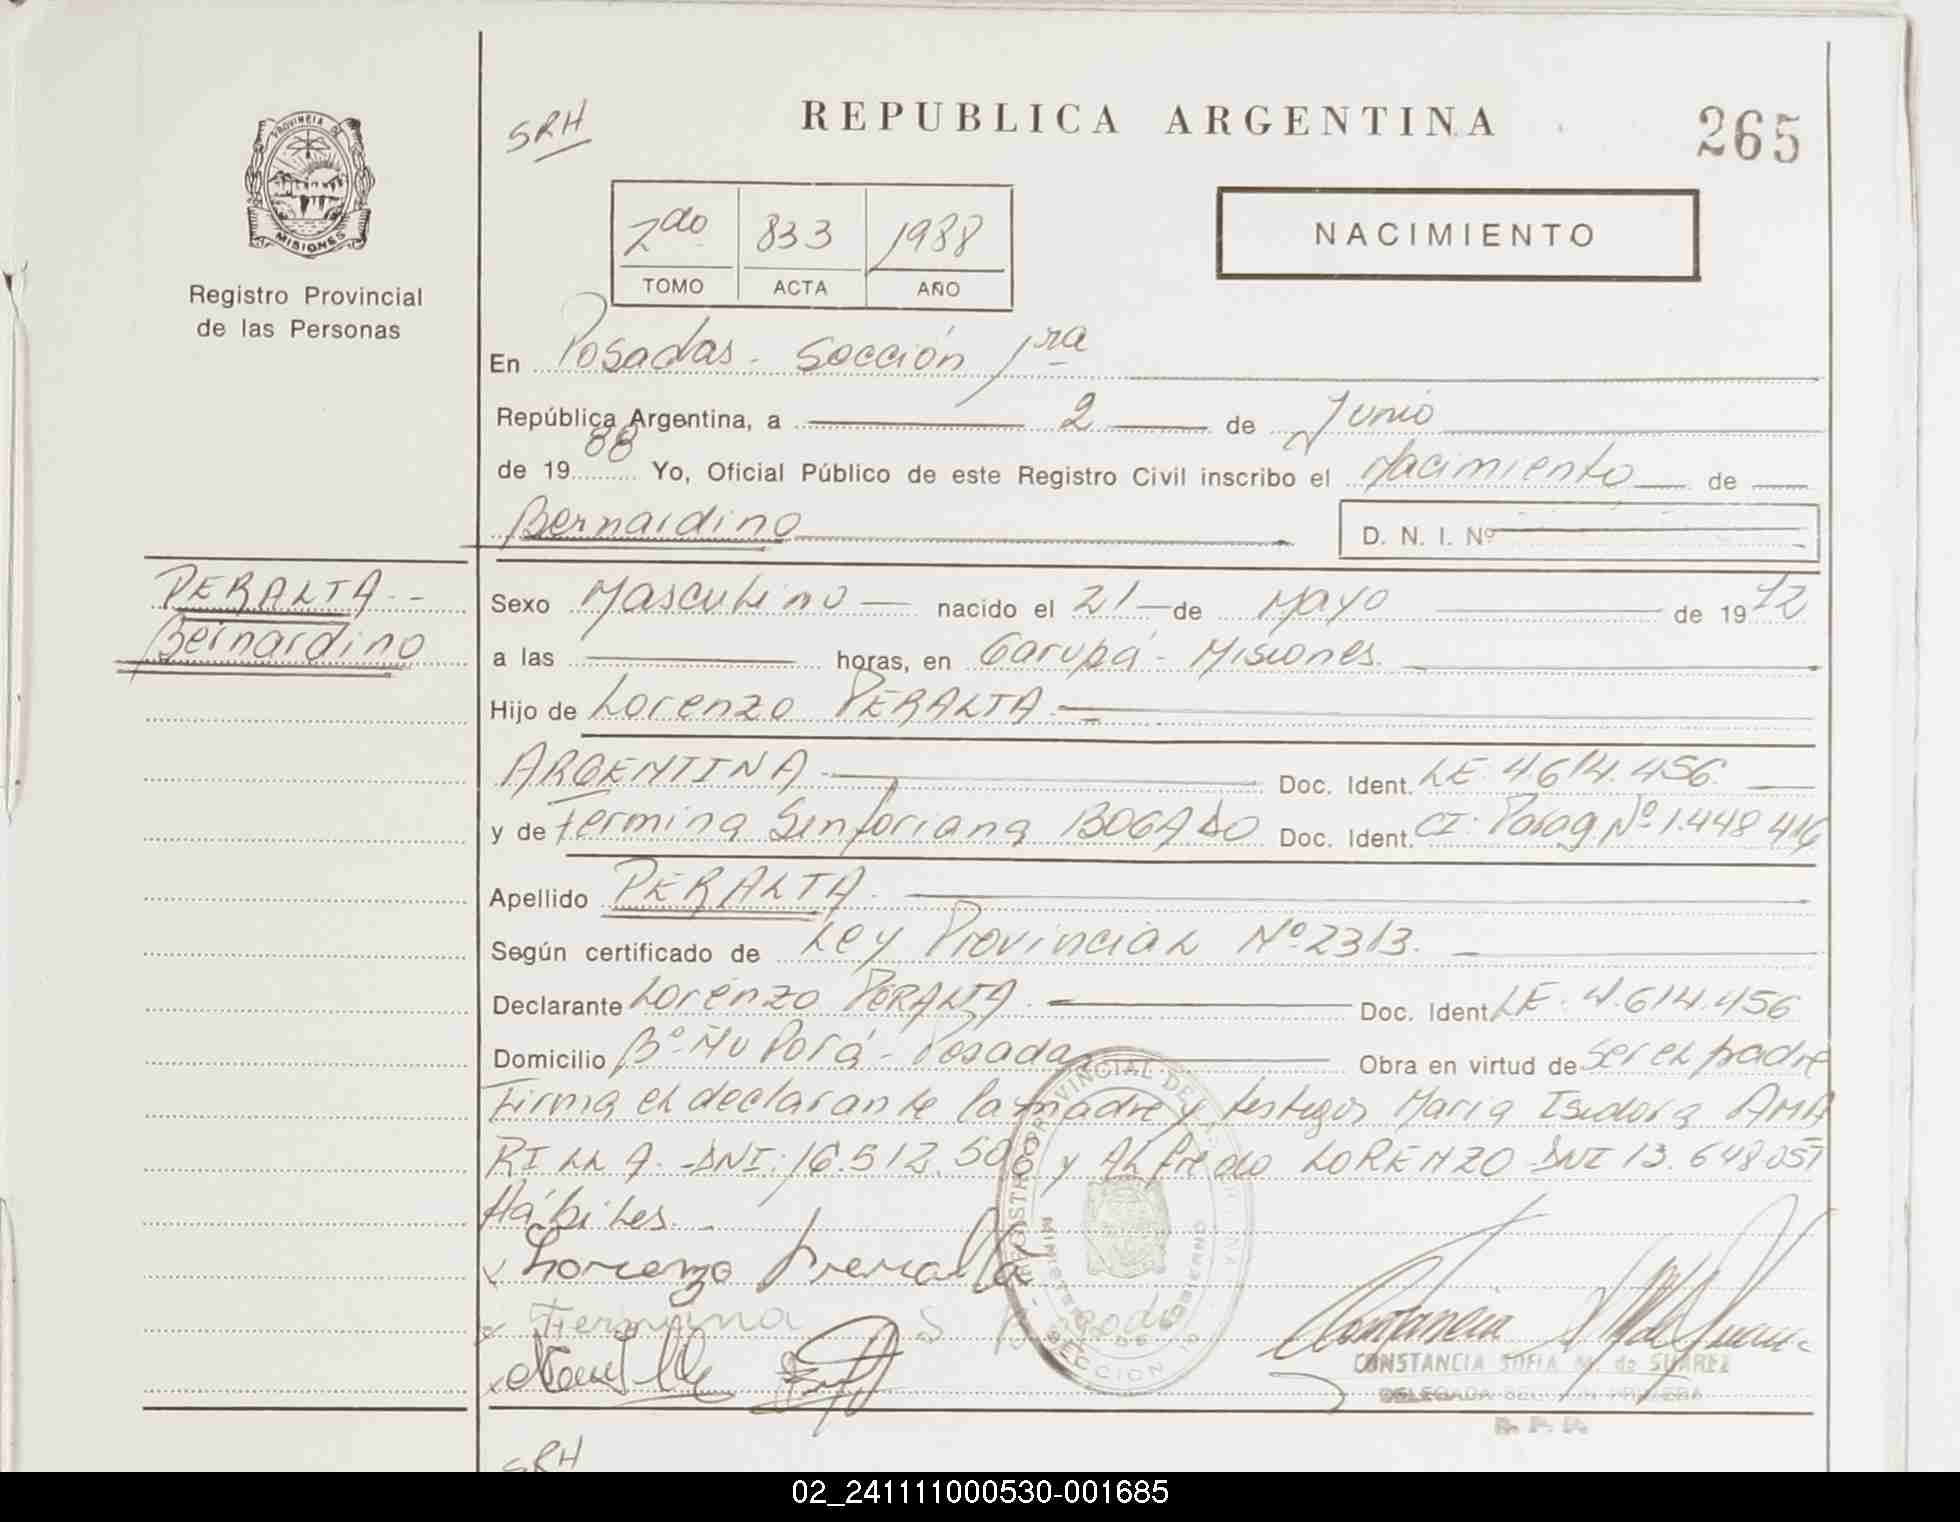 SRH
REPUBLICA ARGENTINA
265
PROVINCIA DE
MISIONES
Registro Provincial
de las Personas
2do 833 1988
TOMO ACTA AÑO
NACIMIENTO
En Posadas - Sección 1ra
República Argentina, a 2 de Junio
de 1988 Yo, Oficial Público de este Registro Civil inscribo el Nacimiento de
Bernardino D. N. I. Nº
PERALTA
Bernardino
Sexo Masculino nacido el 21 de Mayo de 1972
a las horas, en Garupá - Misiones.
Hijo de Lorenzo PERALTA
ARGENTINA Doc. Ident. LE. 4.614.456
y de Fermina Sinforiana BOGADO Doc. Ident. CI: Parag. Nº 1.448 416
Apellido PERALTA
Según certificado de Ley Provincial Nº 2313.
Declarante Lorenzo PERALTA Doc. Ident LE. 4.614.456
Domicilio Bº Ñu Porá - Posadas Obra en virtud de ser el padre
Firma el declarante la madre y testigos Maria Isidora AMA
RILLA - DNI: 16.512.50 y Alfredo LORENZO DNI 13.648.057
Hábiles.
Lorenzo Peralta
Fermina S Bogado
CONSTANCIA SOFIA M. de SUAREZ
DELEGADA SECCION PRIMERA
R. P. P.
SRH
02_241111000530-001685